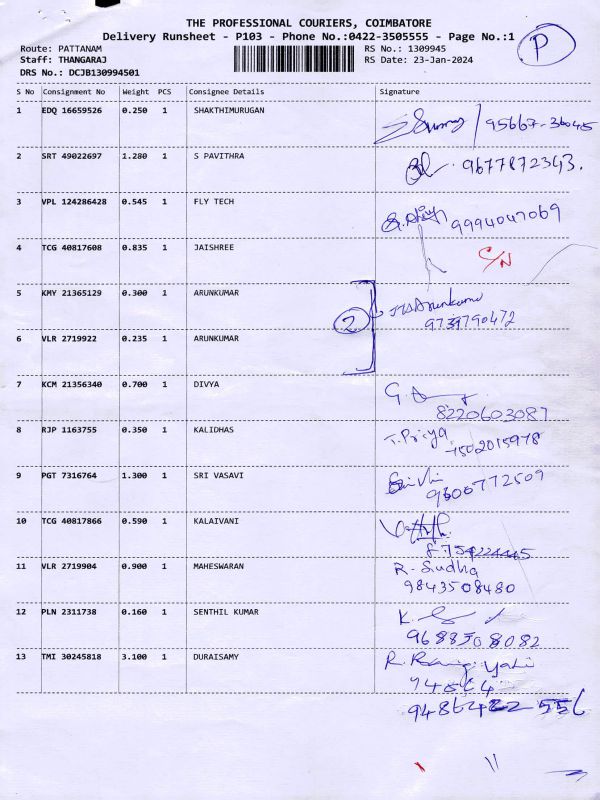 THE PROFESSIONAL COURIERS, COIMBATORE
Delivery Runsheet - P103 - Phone No.:0422-3505555 - Page No.:1
P
Route: PATTANAM RS No.: 1309945
Staff: THANGARAJ RS Date: 23-Jan-2024
DRS No.: DCJB130994501
S No Consignment No Weight PCS Consignee Details Signature
1 EDQ 16659526 0.250 1 SHAKTHIMURUGAN
95667-36045
2 SRT 49022697 1.280 1 S PAVITHRA
9677872343.
3 VPL 124286428 0.545 1 FLY TECH
9994047069
4 TCG 40817608 0.835 1 JAISHREE C/N
5 KMY 21365129 0.300 1 ARUNKUMAR Arunkumar
2 9731790472
6 VLR 2719922 0.235 1 ARUNKUMAR
7 KCM 21356340 0.700 1 DIVYA
8220603087
8 RJP 1163755 0.350 1 KALIDHAS T. Priya
7502015978
9 PGT 7316764 1.300 1 SRI VASAVI
9600772509
10 TCG 40817866 0.590 1 KALAIVANI
11 VLR 2719904 0.900 1 MAHESWARAN R. Sudha
9843508480
12 PLN 2311738 0.160 1 SENTHIL KUMAR
9688508082
13 TMI 30245818 3.100 1 DURAISAMY